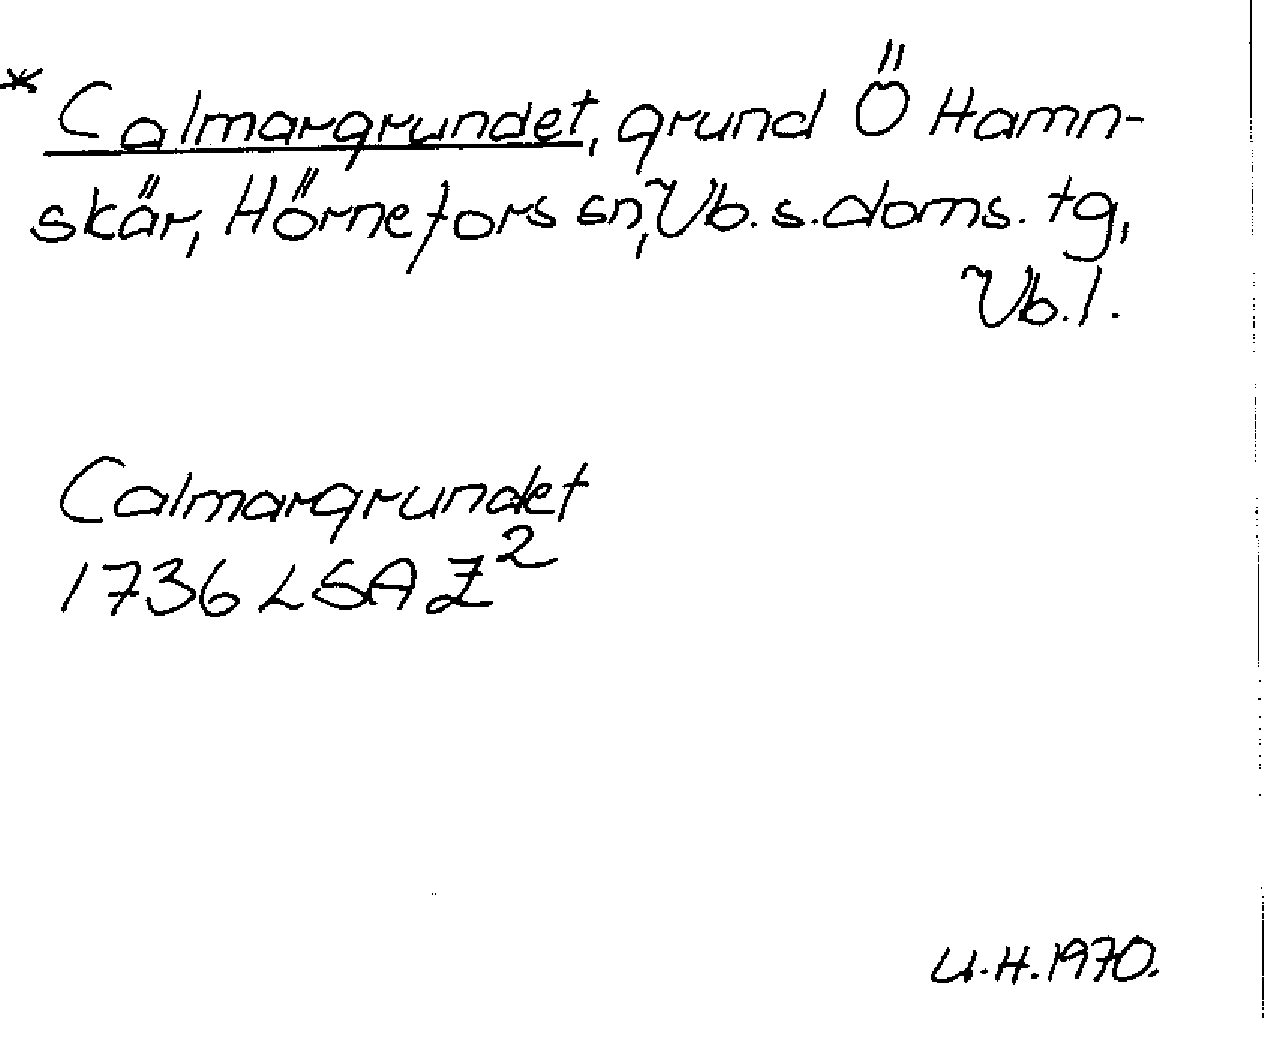 * Calmargrundet, grund Ö Hamn-
skär, Hörnefors sn, Vb. s. doms. tg,
Vb. l.
Calmargrundet
1736 LSA Z²
U.H. 1970.